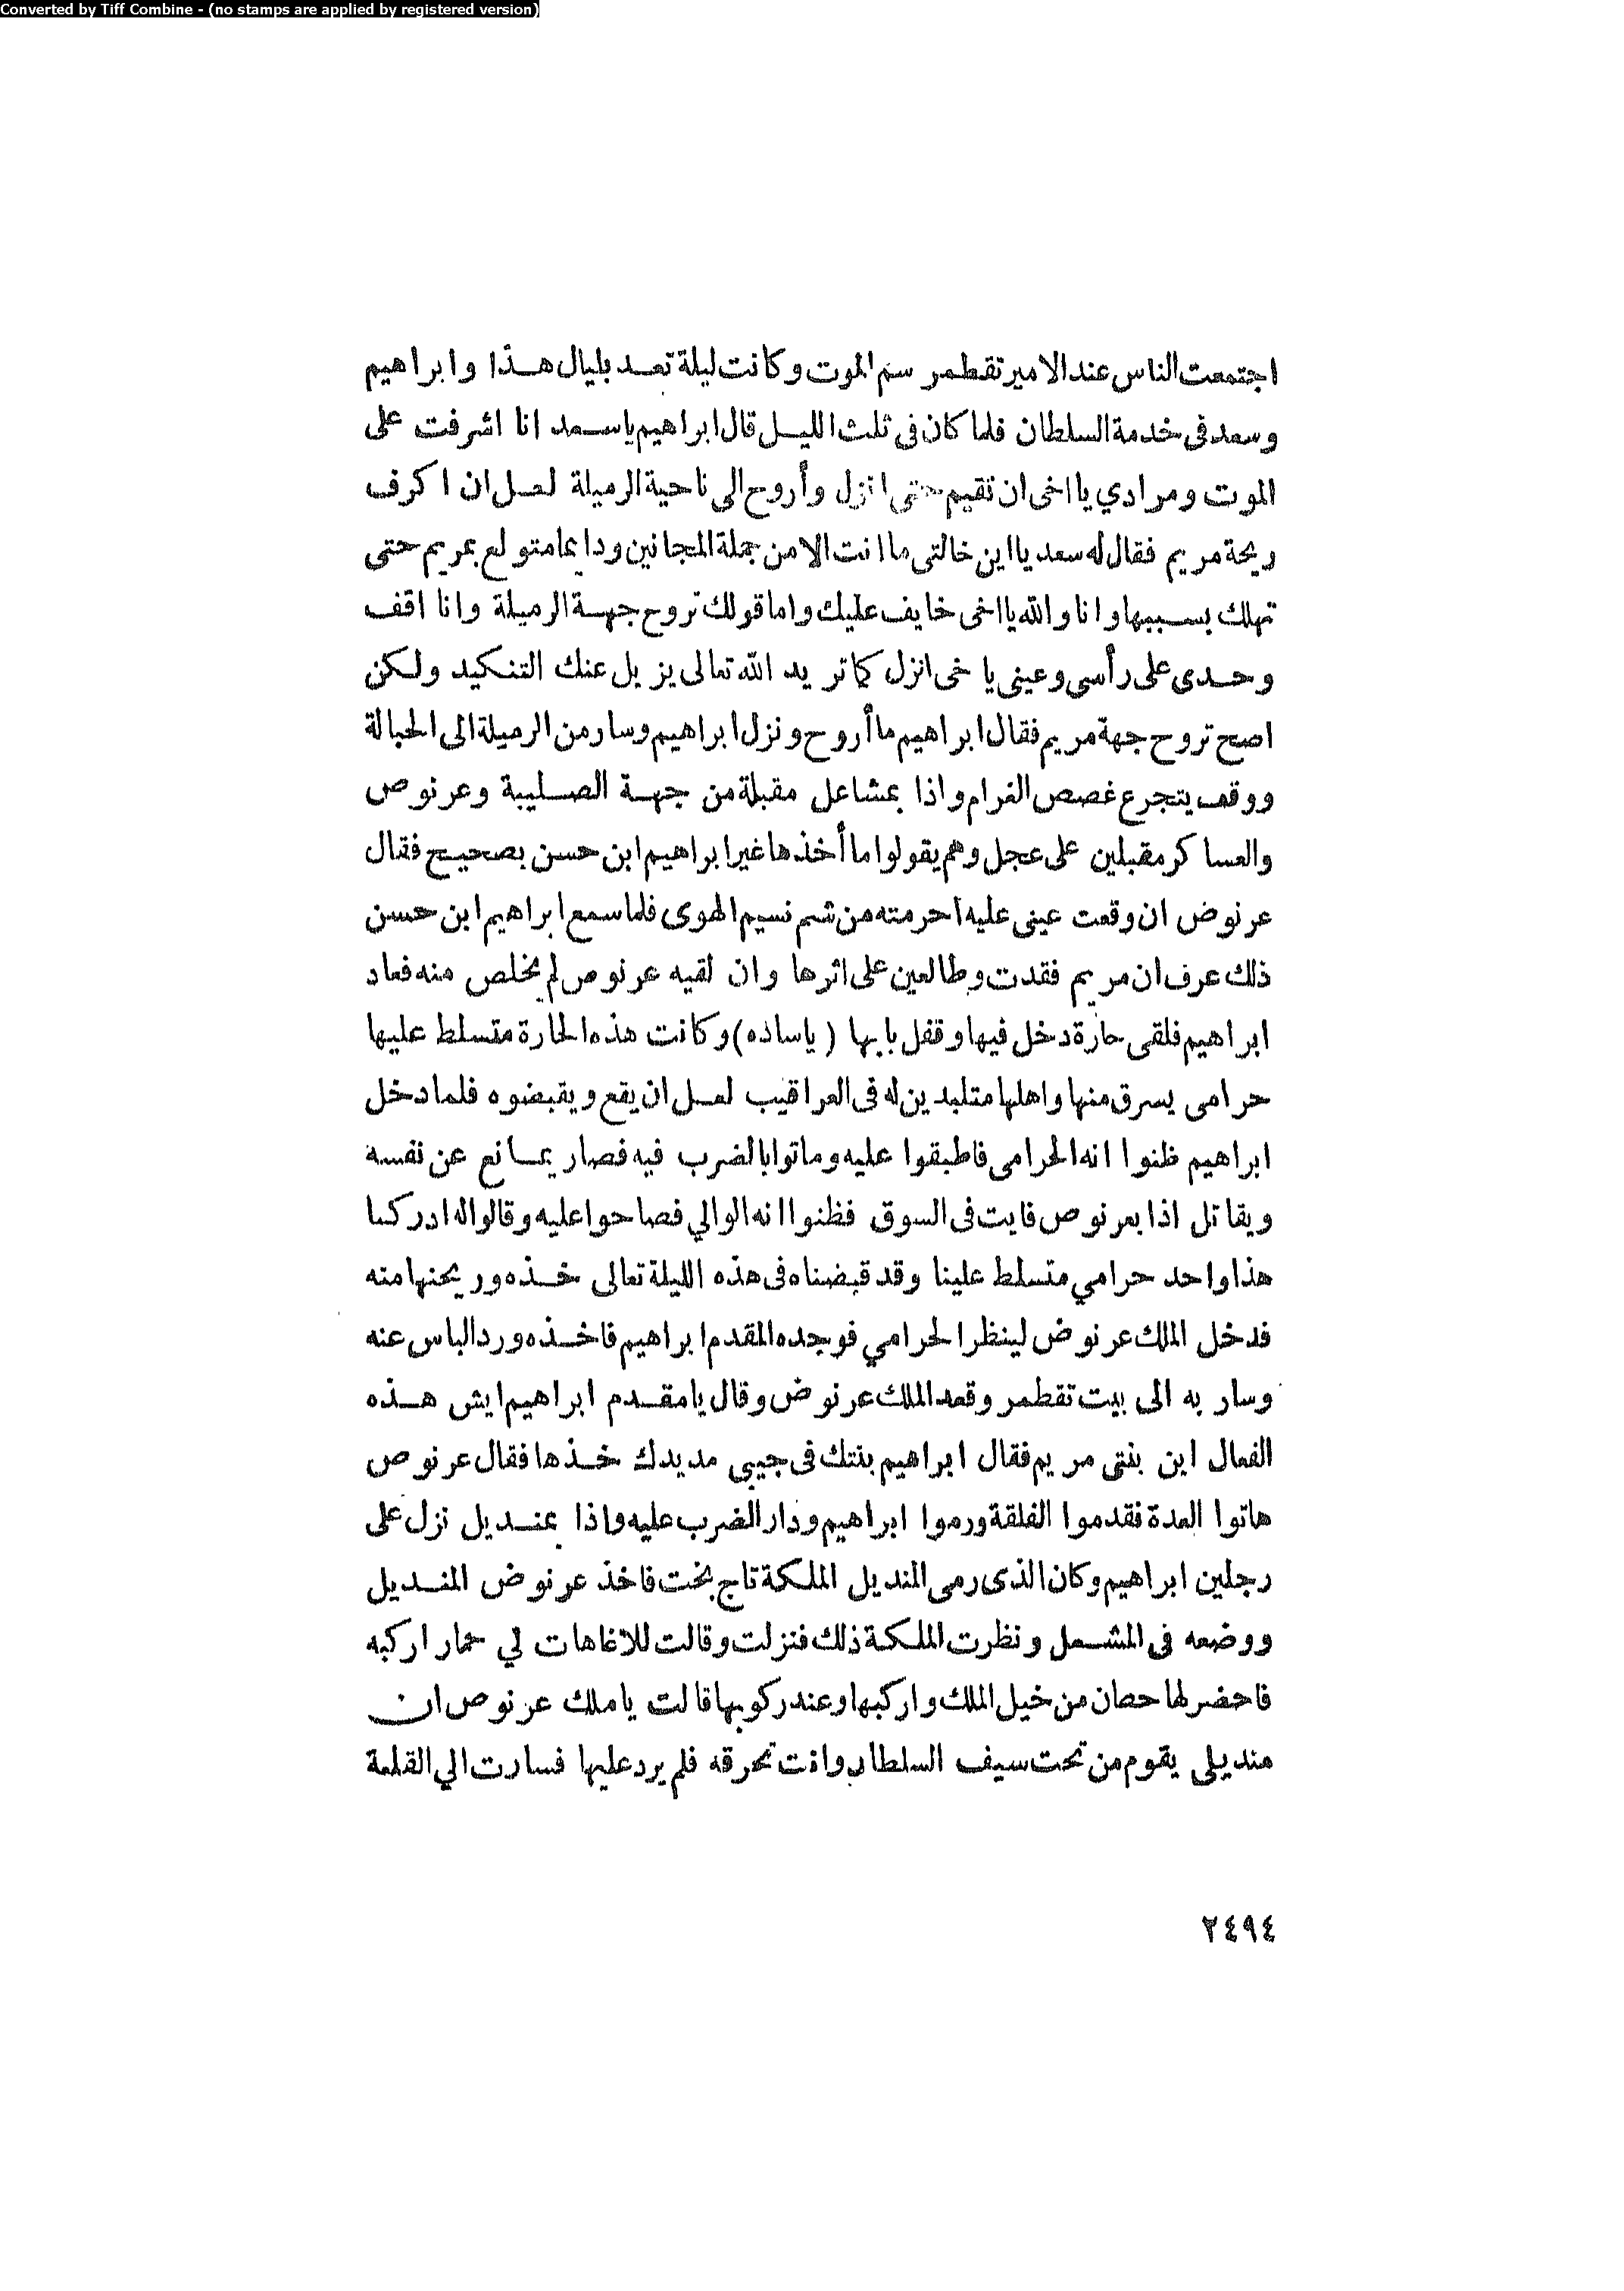 Converted by Tiff Combine - (no stamps are applied by registered version)
اجتمعت الناس عند الامير تقطمر سم الموت وكانت ليلة تعد بليال هذا وابراهيم
وسعد فى خدمة السلطان فلما كان فى ثلث الليل قال ابراهيم ياسعد انا اشرفت على
الموت ومرادي يا اخى ان تقيم حتى انزل وأروح الى ناحية الرميلة لعل ان اكرف
ريحة مريم فقال له سعد يا ابن خالتى ما انت الا من جملة المجانين ودايما متولع بمريم حتى
تهلك بسببها وانا والله يا اخى خايف عليك واما قولك تروح جهة الرميلة وانا اقف
وحدى على رأسى وعينى يا خى انزل كما تريد الله تعالى يزيل عنك التنكيد ولكن
اصح تروح جهة مريم فقال ابراهيم ما أروح ونزل ابراهيم وسار من الرميلة الى الحبالة
ووقف يتجرع غصص الغرام واذا بمشاعل مقبلة من جهة الصليبة وعرنوص
والعساكر مقبلين على عجل وهم يقولوا ما أخذها غير ابراهيم ابن حسن بصحيح فقال
عرنوض ان وقعت عينى عليه احرمته من شم نسيم الهوى فلما سمع ابراهيم ابن حسن
ذلك عرف ان مريم فقدت وطالعين على اثرها وان لقيه عرنوص لم يخلص منه فعاد
ابراهيم فلقى حارة دخل فيها وقفل بابها (ياساده) وكانت هذه الحارة متسلط عليها
حرامى يسرق منها واهلها متلبدين له فى العراقيب لعل ان يقع ويقبضوه فلما دخل
ابراهيم ظنوا انه الحرامى فاطبقوا عليه وماتوا بالضرب فيه فصار يمانع عن نفسه
ويقاتل اذا بعرنوص فايت فى السوق فظنوا انه الوالي فصاحوا عليه وقالوا له ادركنا
هذا واحد حرامي متسلط علينا وقد قبضناه فى هذه الليلة تعالى خذه وريحنها منه
فدخل الملك عرنوض لينظر الحرامي فوجده المقدم ابراهيم فاخذه ورد الباس عنه
وسار به الى بيت تقطمر وقعد الملك عرنوض وقال يامقدم ابراهيم ايش هذه
الفعال اين بنتى مريم فقال ابراهيم بنتك فى جيبي مد يدك خذها فقال عرنوص
هاتوا العدة فقدموا الفلقة ورموا ابراهيم ودار الضرب عليه واذا بمنديل نزل على
رجلين ابراهيم وكان الذى رمى المنديل الملكة تاج بخت فاخذ عرنوض المنديل
ووضعه فى المشعل ونظرت الملكة ذلك فنزلت وقالت للاغاهات لي حمار اركبه
فاحضر لها حصان من خيل الملك واركبها وعند ركوبها قالت ياملك عرنوص ان
منديلى يقوم من تحت سيف السلطان وانت تحرقه فلم يرد عليها فسارت الي القلعة
٢٤٩٤